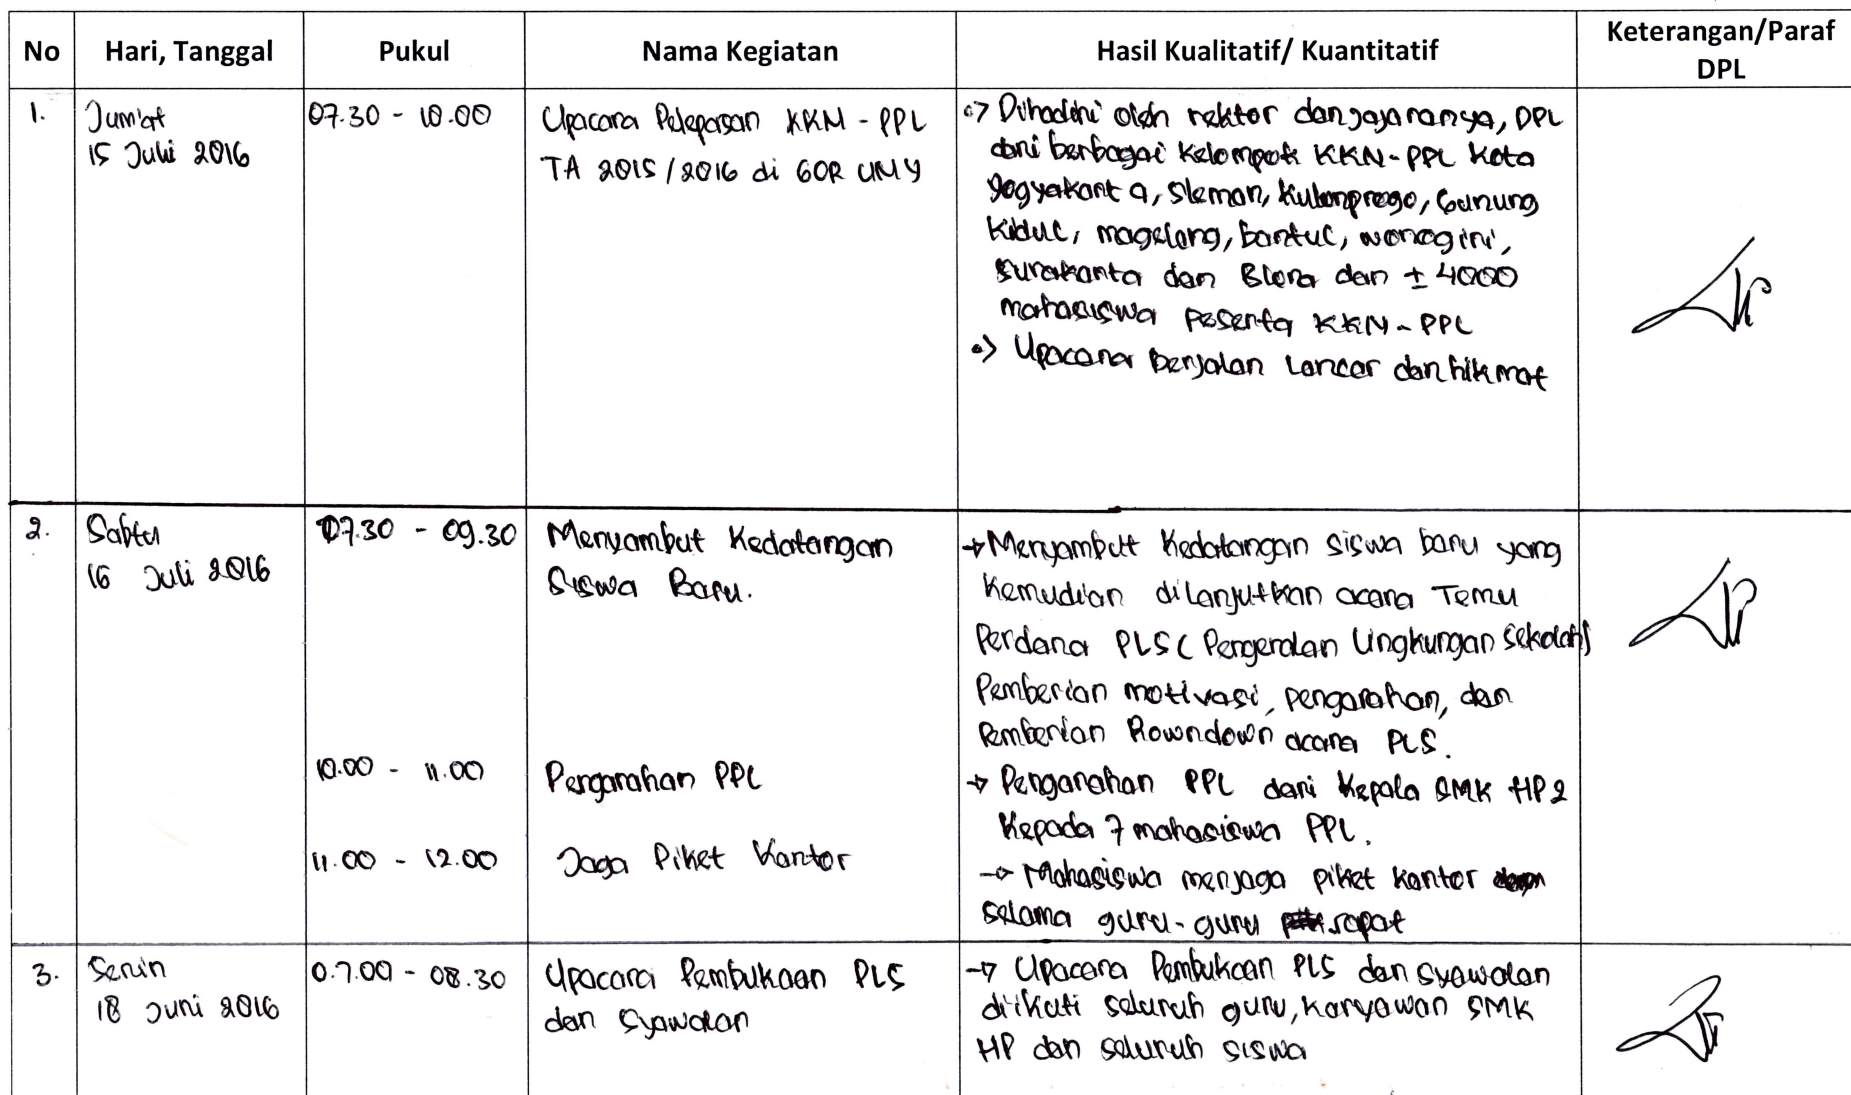 No Hari, Tanggal Pukul Nama Kegiatan Hasil Kualitatif/ Kuantitatif Keterangan/Paraf DPL
1. Jum'at
15 Juli 2016
07.30 - 10.00
Upacara Pelepasan KKN - PPL
TA 2015/2016 di GOR UNY
Dihadiri oleh rektor dan jajarannya, DPL
dari berbagai kelompok KKN-PPL Kota
Yogyakarta, Sleman, Kulonprogo, Gunung
Kidul, magelang, bantul, wonogiri,
surakarta dan Blora dan ± 4000
mahasiswa peserta KKN - PPL
Upacara berjalan lancar dan hikmat
2. Sabtu
16 Juli 2016
07.30 - 09.30
Menyambut Kedatangan
Siswa Baru.
→ Menyambut Kedatangan siswa baru yang
Kemudian dilanjutkan acara Temu
Perdana PLS (Pengenalan Lingkungan Sekolah)
Pemberian motivasi, pengarahan, dan
Pemberian Rowndown acara PLS.
10.00 - 11.00
Pengarahan PPL
→ Pengarahan PPL dari Kepala SMK HP 2
Kepada 7 mahasiswa PPL.
11.00 - 12.00
Jaga Piket Kantor
→ Mahasiswa menjaga piket kantor
selama guru-guru rapat
3. Senin
18 Juni 2016
0.7.00 - 08.30
Upacara Pembukaan PLS
dan Syawalan
→ Upacara Pembukaan PLS dan Syawalan
diikuti seluruh guru, karyawan SMK
HP dan seluruh siswa